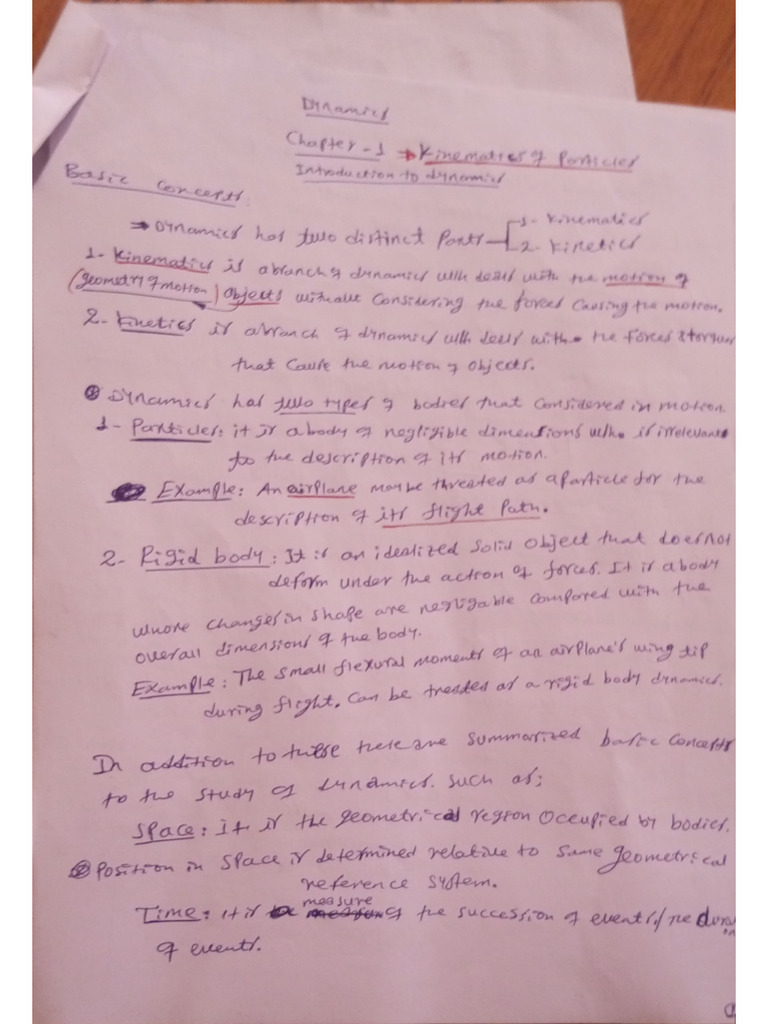 Dynamics
Chapter-1 → Kinematics of Particles
Introduction to dynamics
Basic Concepts:
→ Dynamics has two distinct Parts 1- Kinematics
2- Kinetics
1- Kinematics is a branch of dynamics with deals with the motion of
(geometry of motion) objects without Considering the forces Causing the motion.
2- Kinetics is a branch of dynamics with deals with the forces & torques
that Cause the motion of objects.
Dynamics has two types of bodies that Considered in motion.
1- Particles: it is a body of negligible dimentions who is irrelevant
to the description of its motion.
Example: An airplane may be threated as a particle for the
description of its flight Path.
2- Rigid body: It is an idealized solid object that does not
deform under the action of forces. It is a body
whose changes in shape are negligable compared with the
overall dimensions of the body.
Example: The small flexural moments of an airplane's wing tip
during flight. Can be treated as a rigid body dynamics.
In addition to these there are summarized basic Concepts
to the study of dynamics. such as;
Space: it is the geometrical region occupied by bodies.
Position in space is determined relative to some geometrical
reference system.
Time: it is measure of the succession of events/the duration
of events.